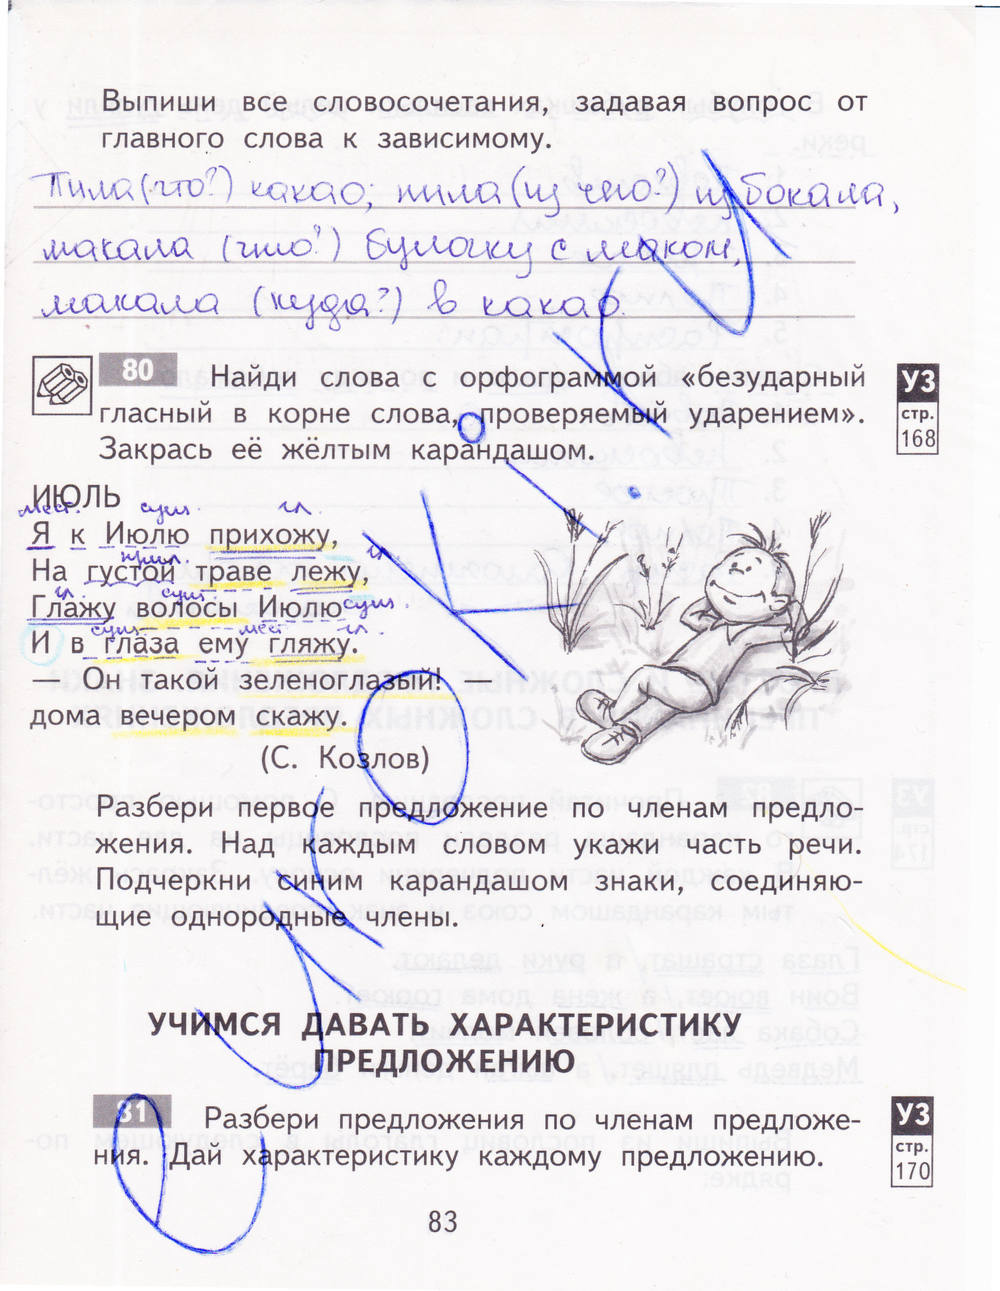 Выпиши все словосочетания, задавая вопрос от
главного слова к зависимому.
Пила (что?) какао, пила (из чего?) из бокала,
макала (что?) булочку с маком,
макала (куда?) в какао.
80 Найди слова с орфограммой «безударный
гласный в корне слова, проверяемый ударением».
Закрась её жёлтым карандашом.
УЗ
стр.
168
ИЮЛЬ
мест. сущ. гл.
Я к Июлю прихожу,
прил. гл.
На густой траве лежу,
гл. сущ. сущ.
Глажу волосы Июлю
сущ. мест. гл.
И в глаза ему гляжу.
— Он такой зеленоглазый!
дома вечером скажу.
(С. Козлов)
Разбери первое предложение по членам предло-
жения. Над каждым словом укажи часть речи.
Подчеркни синим карандашом знаки, соединяю-
щие однородные члены.
УЧИМСЯ ДАВАТЬ ХАРАКТЕРИСТИКУ
ПРЕДЛОЖЕНИЮ
81 Разбери предложения по членам предложе-
ния. Дай характеристику каждому предложению.
УЗ
стр.
170
83